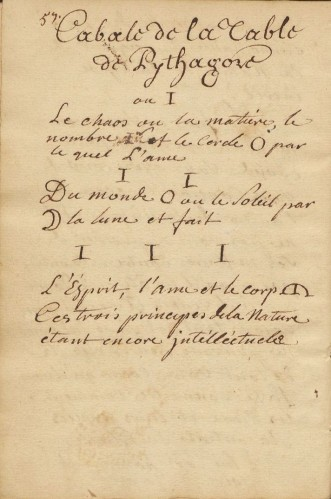 57.
Cabale de la Table
de Pythagore
ou I
Le chaos ou la matiére, le
nombre et le Cercle O par
le quel L'ame
I I
Du monde O ou le Soleil par
D la lune et fait
I I I
L'Esprit, l'ame et le corp
Ces trois principes de la Nature
étant encore intéllectuels